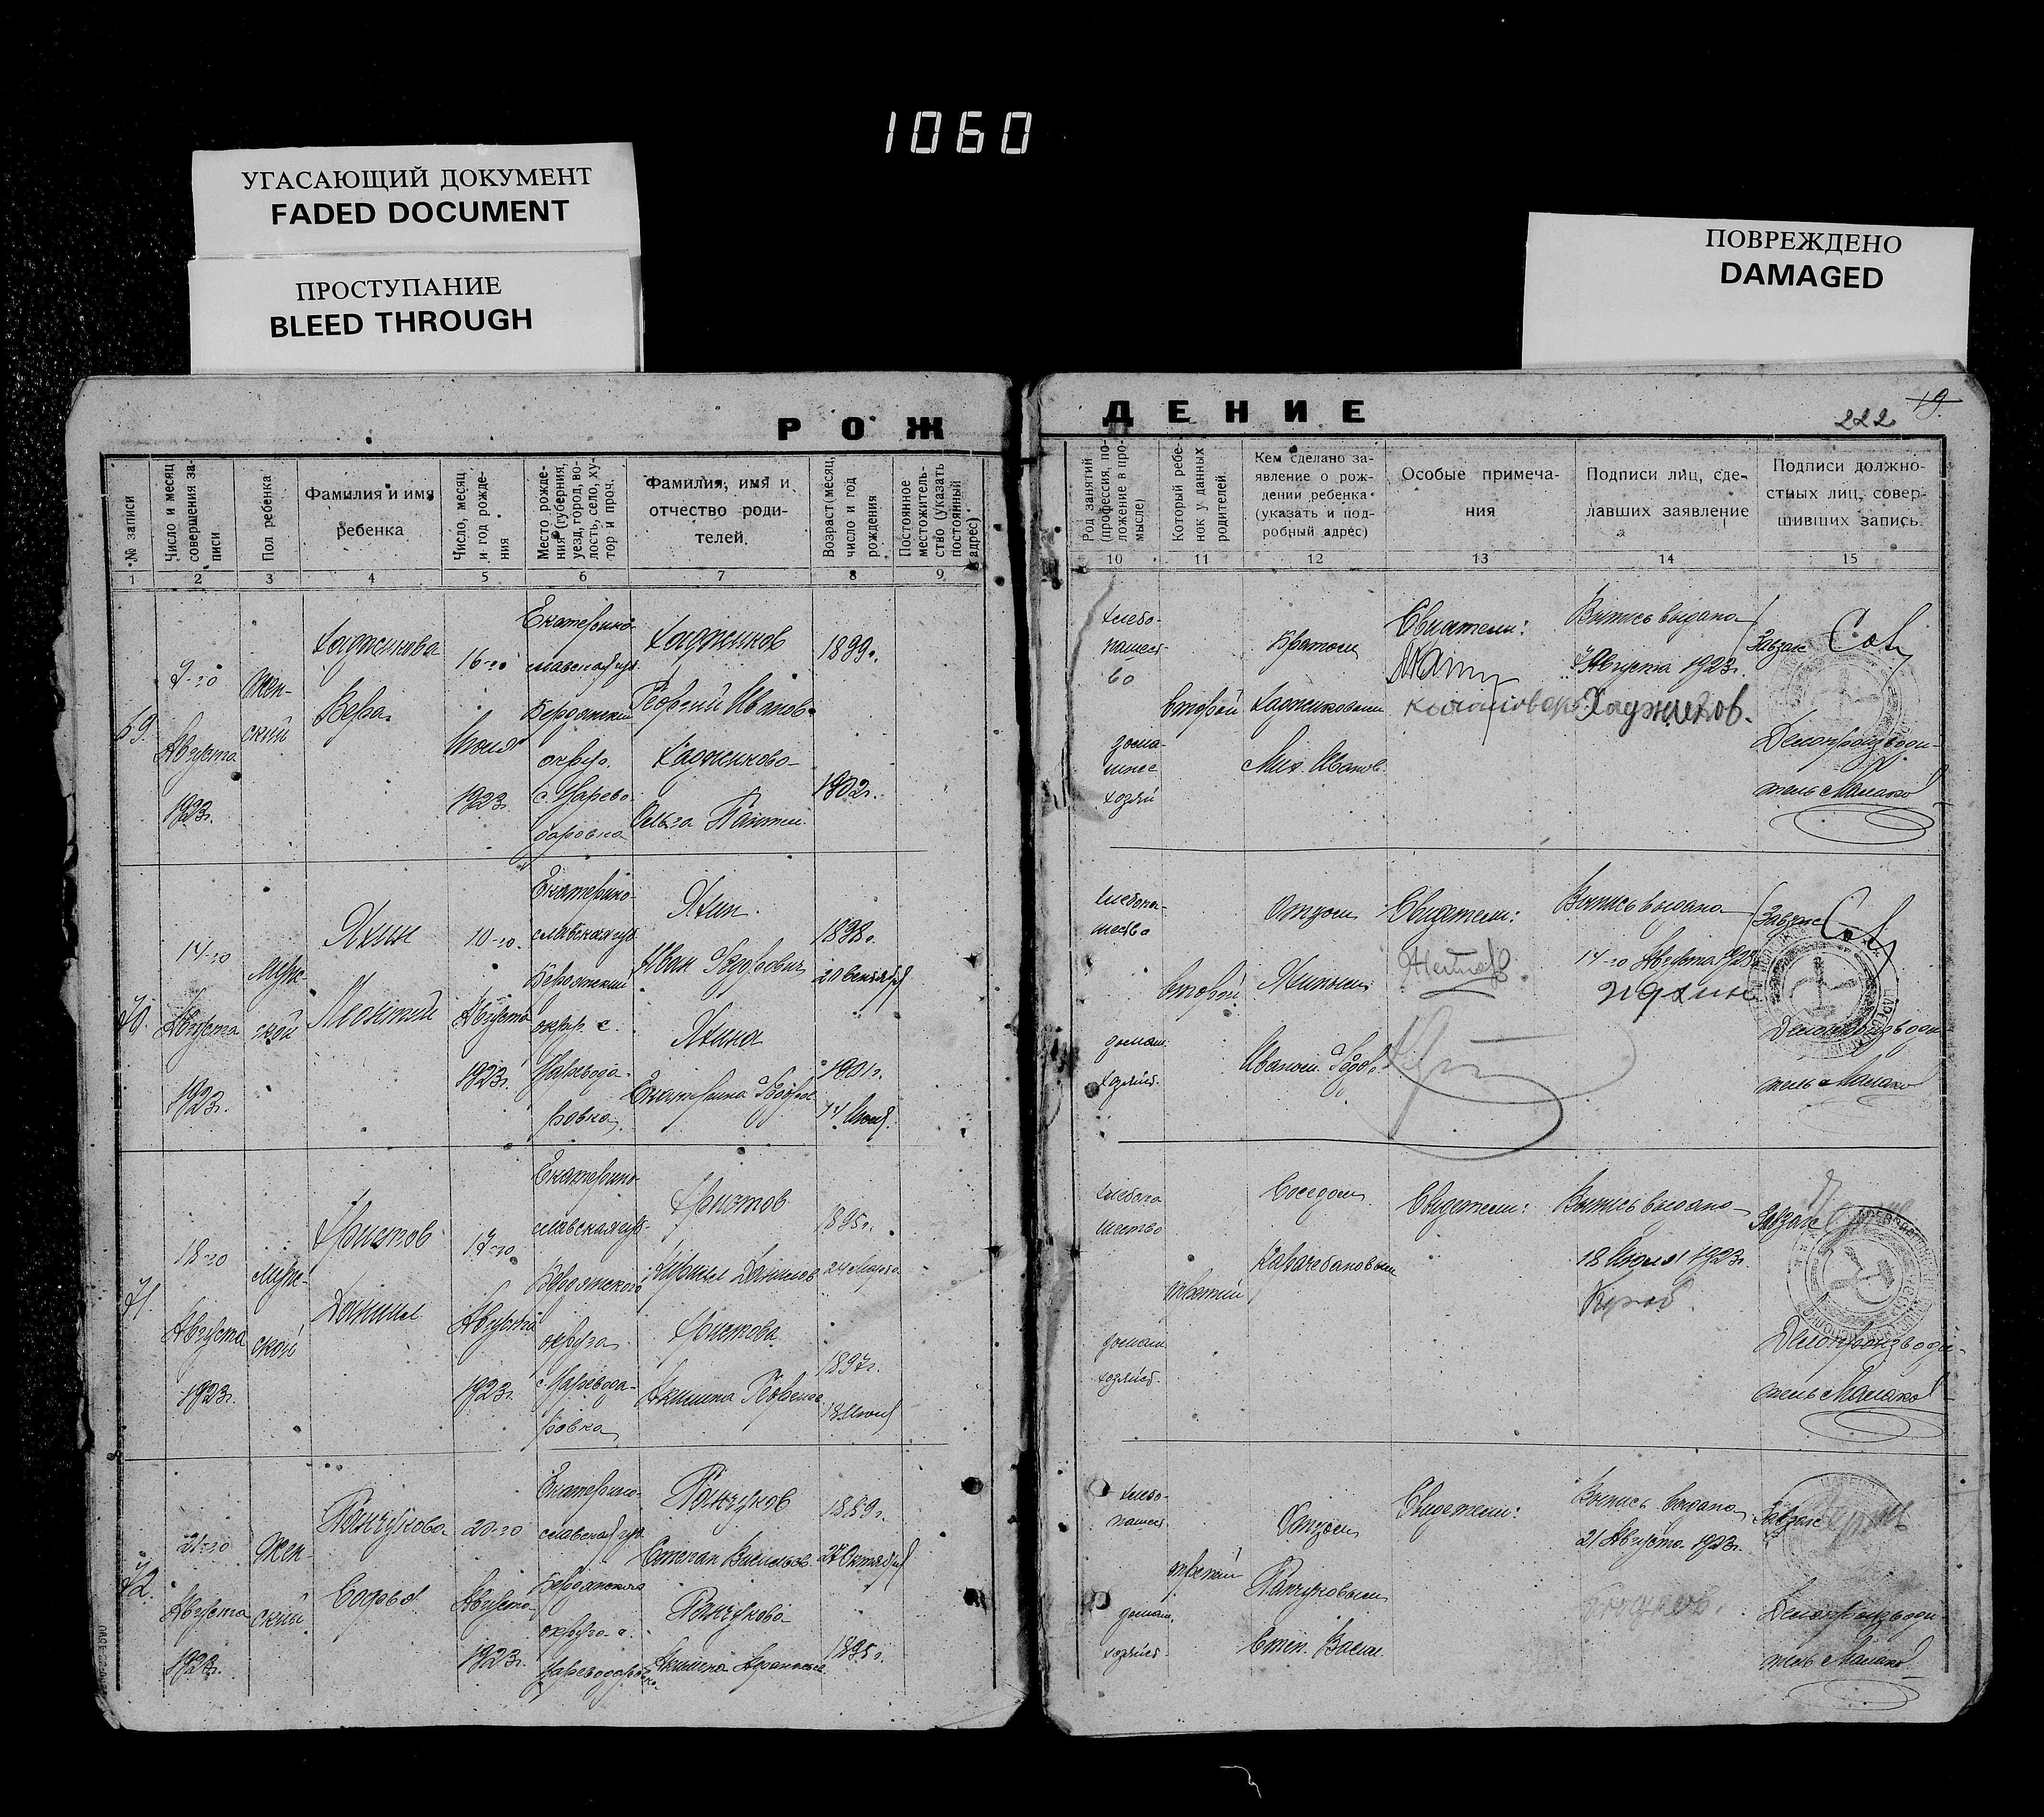 1060
УГАСАЮЩИЙ ДОКУМЕНТ
FADED DOCUMENT
ПРОСТУПАНИЕ
BLEED THROUGH
ПОВРЕЖДЕНО
DAMAGED
19
222
РОЖ
ДЕНИЕ
№ записи
Число и месяц совершения записи
Пол ребенка
Фамилия и имя
ребенка
Число, месяц и год рождения
Место рождения (губерния, уезд, город, волость, село, хутор и проч.
Фамилия, имя и
отчество роди-
телей.
Возраст (месяц, число и год рождения
Постоянное местожительство (указать постоянный адрес)
Род занятий (профессия, положение в промысле)
Который ребенок у данных родителей.
Кем сделано за-
явление о рож-
дении ребенка
(указать и под-
робный адрес)
Особые примеча-
ния
Подписи лиц, сде-
лавших заявление
Подписи должно-
стных лиц, совер-
шивших запись.
1 2 3 4 5 6 7 8 9
10 11 12 13 14 15
69.
7-го
Августа
1923г.
Жен-
ский
Хаджинова
Вера
16-го
Июля
1923г.
Екатерино-
славская губ.
Бердянский
округ.
с. Царево-
даровка
Хаджинов
Георгий Иванов.
Хаджинова
Ольга Пантел.
1899г.
1902г.
хлебо-
пашест-
во
дома-
шнее
хозяй
второй
Братом
Хаджиновым
Мих. Иванов.
Свидетели:
Выпись выдана
7 Августа 1923г.
Хаджинов.
Завзагс
Делопроизводи-
тель
70.
14-го
Августа
1923г.
Муж-
ской
Яхин
Леонтий
10-го
Августа
1923г.
Екатерино-
славская губ.
Бердянский
округ. с.
Царевода-
ровка
Яхин
Иван Федорович
Яхина
Екатерина Федоров.
1898г.
20 Сентября
1901г.
14 Июня
хлебопа-
шество
домаш.
хозяйст.
второй
Отцом
Яхиным
Иваном Федор.
Свидетели:
Выпись выдана
14-го Августа 1923г.
Завзагс
Делопроизводи-
тель
71.
18-го
Августа
1923г.
Муж-
ской
Христов
Даниил
17-го
Августа
1923г.
Екатерино-
славская губ.
Бердянского
округа
с. Царевода-
ровка
Христов
Христова
1895г.
24 Марта
1897г.
хлебопа
шество
домаш
хозяйст.
третий
Соседом
Свидетели:
Выпись выдана
18 Июля 1923г.
Завзагс
Делопроизводи-
тель
72.
21-го
Августа
1923г.
Жен-
ский
Панчукова
Софья
20-го
Августа
1923г.
Екатерино-
славская губ.
Бердянского
округа с.
Цареводаровка
Панчуков
Степан Васильев.
Панчукова
1889г.
27 Октября
1895г.
хлебо-
пашест.
домаш.
хозяйст.
третий
Отцом
Панчуковым
Степ. Васил.
Свидетели:
Выпись выдана
21 Августа 1923г.
Завзагс
Делопроизводи-
тель